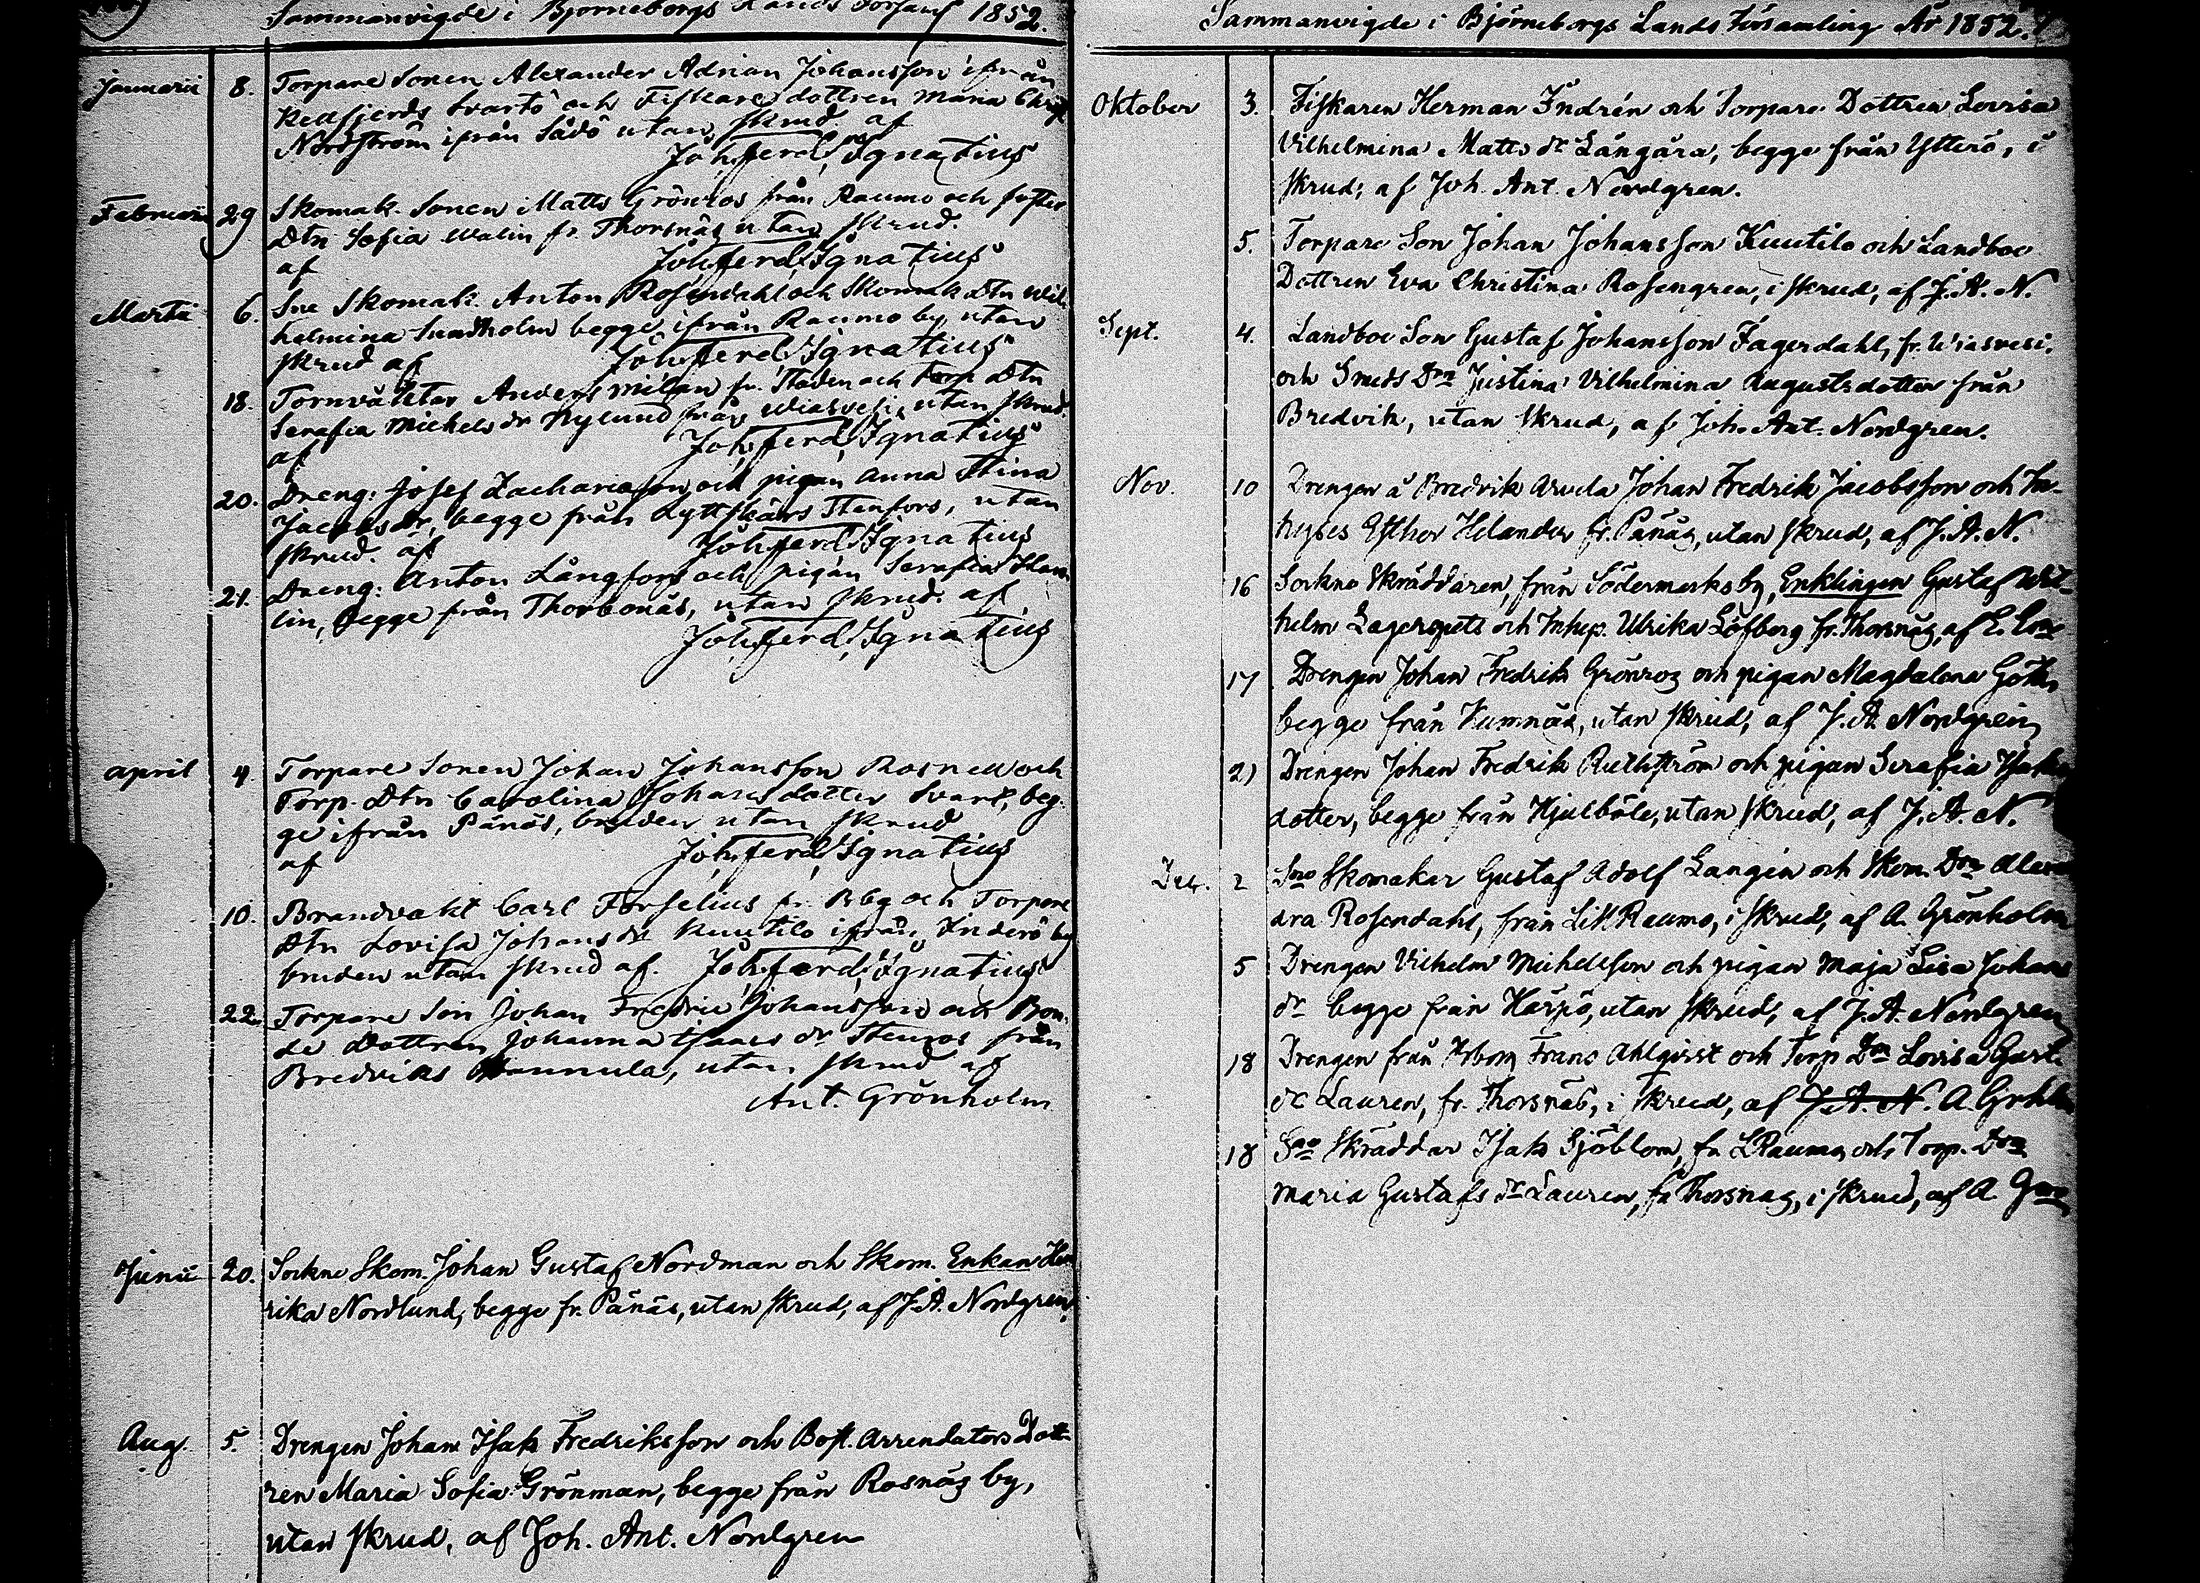 Sammanvigde i Björneborgs Lands Församl 1852.
Januarii 8. Torpare Sonen Alexander Adrian Johansson ifrån
Kellfjerds Svartö och Fiskare dottren Maria Christ
Nordström ifrån Sådö utan skrud af
Joh. Ferd. Ignatius
Februarii 29 Skomak. Sonen Matts Grönros från Raumo och foster
dtn Sofia Malin fr. Thorsnäs utan skrud.
af Joh. Ferd. Ignatius
Martii 6. Sne Skomak. Anton Rosendahl och Skomak dtn Wil-
helmina Sundholm begge ifrån Raumo by utan
skrud af Joh. Ferd. Ignatius
18. Tornväktar Anders Milan fr. Staden och torp dtn
Serafia Michels dr Nylund från Wiasvesi, utan skrud.
af Joh. Ferd. Ignatius
20. Dreng: Josef Zachariasson och pigan Anna Stina
Jacobs dr, begge från Lyttskärs Stenfors, utan
skrud. af Joh. Ferd. Ignatius
21. Dreng: Anton Långfors och pigan Serafia
lin, begge från Thorbonäs, utan skrud. af
Joh. Ferd. Ignatius
April 4. Torpare Sonen Johan Johansson Rosnell och
Torp. dtn Carolina Johansdotter Svart, beg-
ge ifrån Pänäs, bruden utan skrud
af Joh. Ferd. Ignatius
10. Brandvakt Carl Forselius fr. Bbg och Torpare
dtn Lovisa Johans dr Kuutilo ifrån Inderö by
bruden utan skrud af. Joh. Ferd. Ignatius
22. Torpare Son Johan Fredric Johansson och Bon-
de Dottren Johanna Isaacs dr Stenros från
Bredviks Hannula, utan skrud af
Ant. Grönholm
Junii 20. Sockne Skom. Johan Gustaf Nordman och Skom. Enkan Hen
rika Nordlund, begge fr. Pänäs, utan skrud, af J. A. Nordgren.
Aug. 5. Drengen Johan Isak Fredriksson och Bost. Arrendators Dott-
ren Maria Sofia Grönman, begge från Rosnäs by,
utan skrud, af Joh. Ant. Nordgren
Sammanvigde i Björneborgs Lands Församling År 1852.
Oktober 3. Fiskaren Herman Indrén och Torpare Dottren Lovisa
Vilhelmina Matts dr Långåra, begge från Ytterö, i
skrud, af Joh. Ant. Nordgren.
5. Torpare Son Johan Johansson Kuutilo och Landboe
Dottren Eva Christina Rosengren, i skrud, af J. A. N.
Sept. 4. Landboe Son Gustaf Johansson Fagerdahl, fr. Wiasvesi.
och Smeds Drn Justina Vilhelmina Augustsdotter från
Bredvik, utan skrud, af Joh. Ant. Nordgren.
Nov. 10 Drengen å Bredvik Arvela Johan Fredrik Jacobsson och In-
hyses Esther Helander fr. Pänäs, utan skrud, af J. A. N.
16 Sockne Skräddaren, från Södermarks by, Enklingen Gustaf Wil-
helm Lagerspets och Inhys. Ulrika Löfberg fr. Thorsnäs, af E.
17 Drengen Johan Fredrik Grönros och pigan Magdalena
begge från Kumnäs, utan skrud, af J. A. Nordgren
21 Drengen Johan Fredrik Ruthström och pigan Serafia Isaks
dotter, begge från Hjulböle, utan skrud, af J. A. N.
Dec. 2 Sne Skomakar Gustaf Adolf Langén och Skom. Drn Alexan
dra Rosendahl, från Lill Raumo, i skrud, af A. Grönholm
5 Drengen Vilhelm Michelsson och pigan Maja Lisa Johans
dr begge från Harjo, utan skrud, af J. A. Nordgren
18 Drengen från Frans Ahlqvist och Torp Drn Lovisa Gust.
dr Lauren, fr. Thorsnäs, i skrud, af J. A. N. A. Grhlm
18 Sne Skräddar Isak Sjöblom, fr. L Raumo, och Torp. Drn
Maria Gustafs dr Lauren, fr Thorsnäs, i skrud, af A.